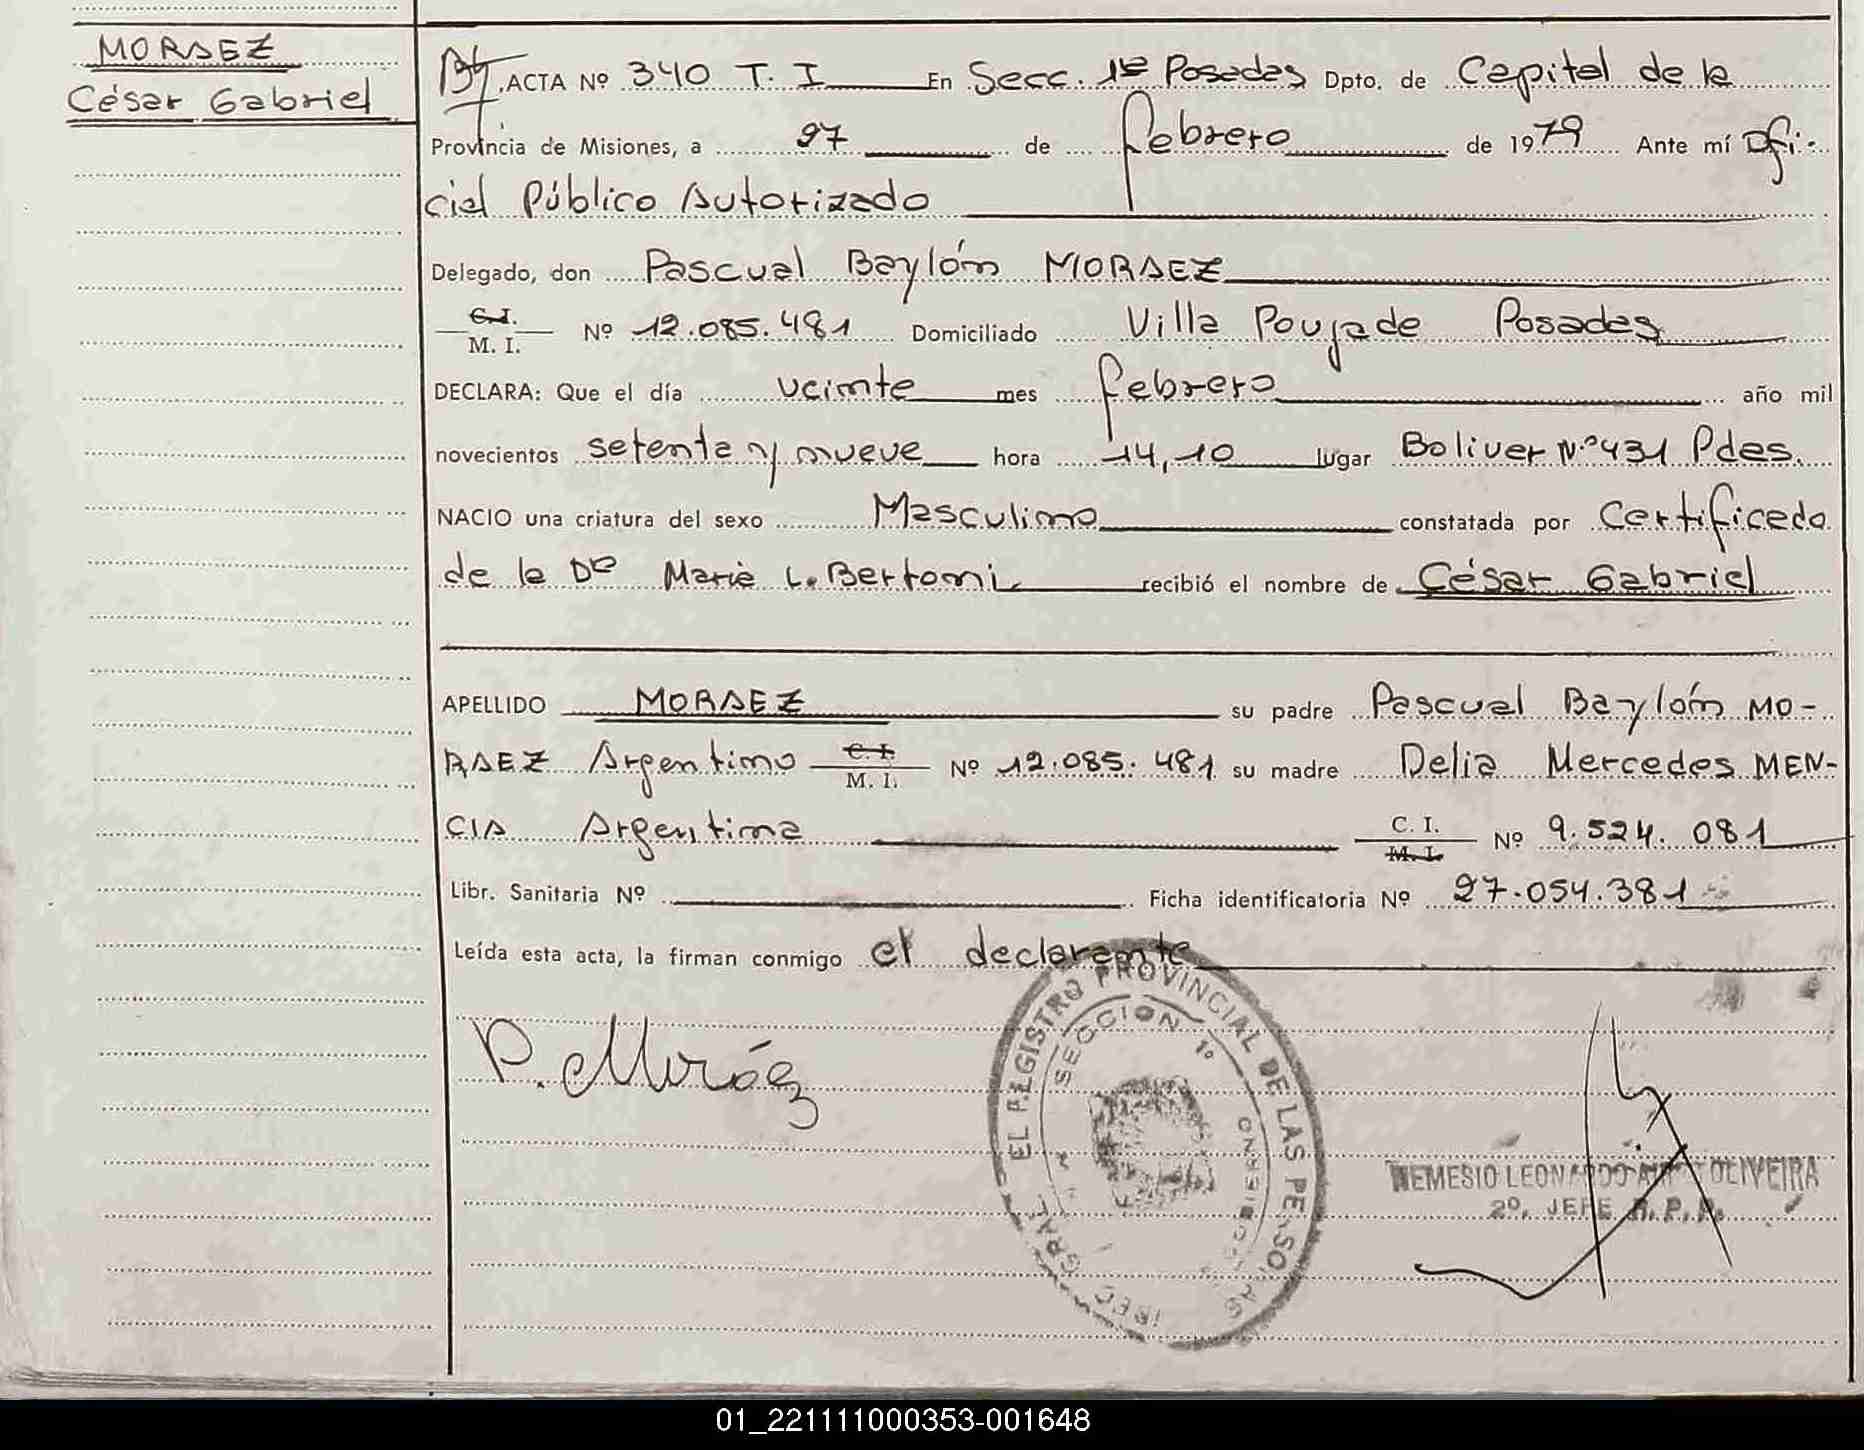 MORAEZ
César Gabriel
ACTA Nº 340 T. I En Secc. 1ª Posadas Dpto. de Capital de la
Provincia de Misiones, a 27 de febrero de 1979 Ante mí Ofi-
cial Público Autorizado
Delegado, don Pascual Baylón MORAEZ
C.I.
M. I. Nº 12.085.481 Domiciliado Villa Poujade Posadas
DECLARA: Que el día veinte mes febrero año mil
novecientos setenta y nueve hora 14,10 lugar Bolivar N.º 431 Pdas.
NACIO una criatura del sexo Masculino constatada por Certificado
de la Dra Maria L. Bertoni recibió el nombre de César Gabriel
APELLIDO MORAEZ su padre Pascual Baylón MO-
RAEZ Argentino C. I.
M. I. Nº 12.085.481 su madre Delia Mercedes MEN-
CIA Argentina C. I.
M. I. Nº 9.524.081
Libr. Sanitaria Nº Ficha identificatoria Nº 27.054.381
Leída esta acta, la firman conmigo el declarante
EL REGISTRO PROVINCIAL DE LAS PERSONAS
SECCION 1º
GRAL
NEMESIO LEONARDO OLIVEIRA
2º. JEFE R. P. P.
01_221111000353-001648